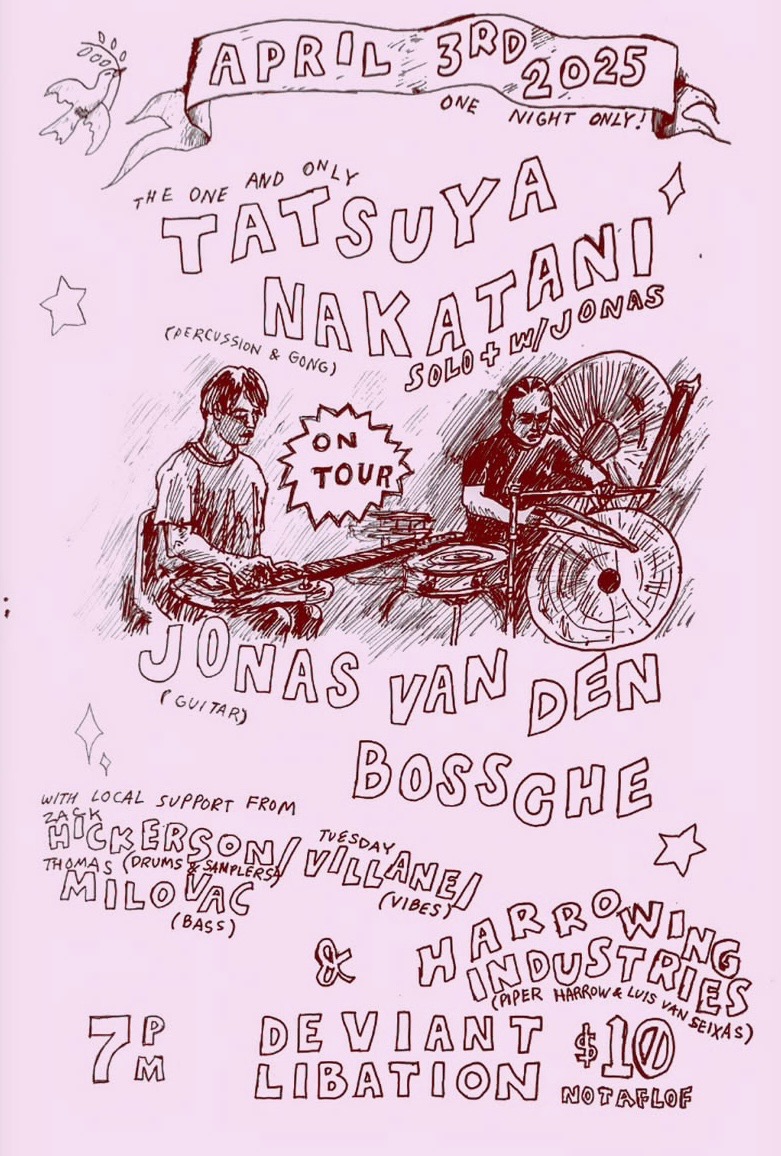 APRIL 3RD 2025
ONE NIGHT ONLY!
THE ONE AND ONLY
TATSUYA
NAKATANI
SOLO + W/JONAS
(PERCUSSION & GONG)
ON
TOUR
JONAS VAN DEN
(GUITAR)
BOSSCHE
WITH LOCAL SUPPORT FROM
ZACK
HICKERSON/
(DRUMS & SAMPLERS)
TUESDAY
VILLANE/
(VIBES)
THOMAS
MILOVAC
(BASS)
& HARROWING
INDUSTRIES
(PIPER HARROW & LUIS VAN SEIXAS)
7PM
DEVIANT
LIBATION
$10
NOTAFLOF